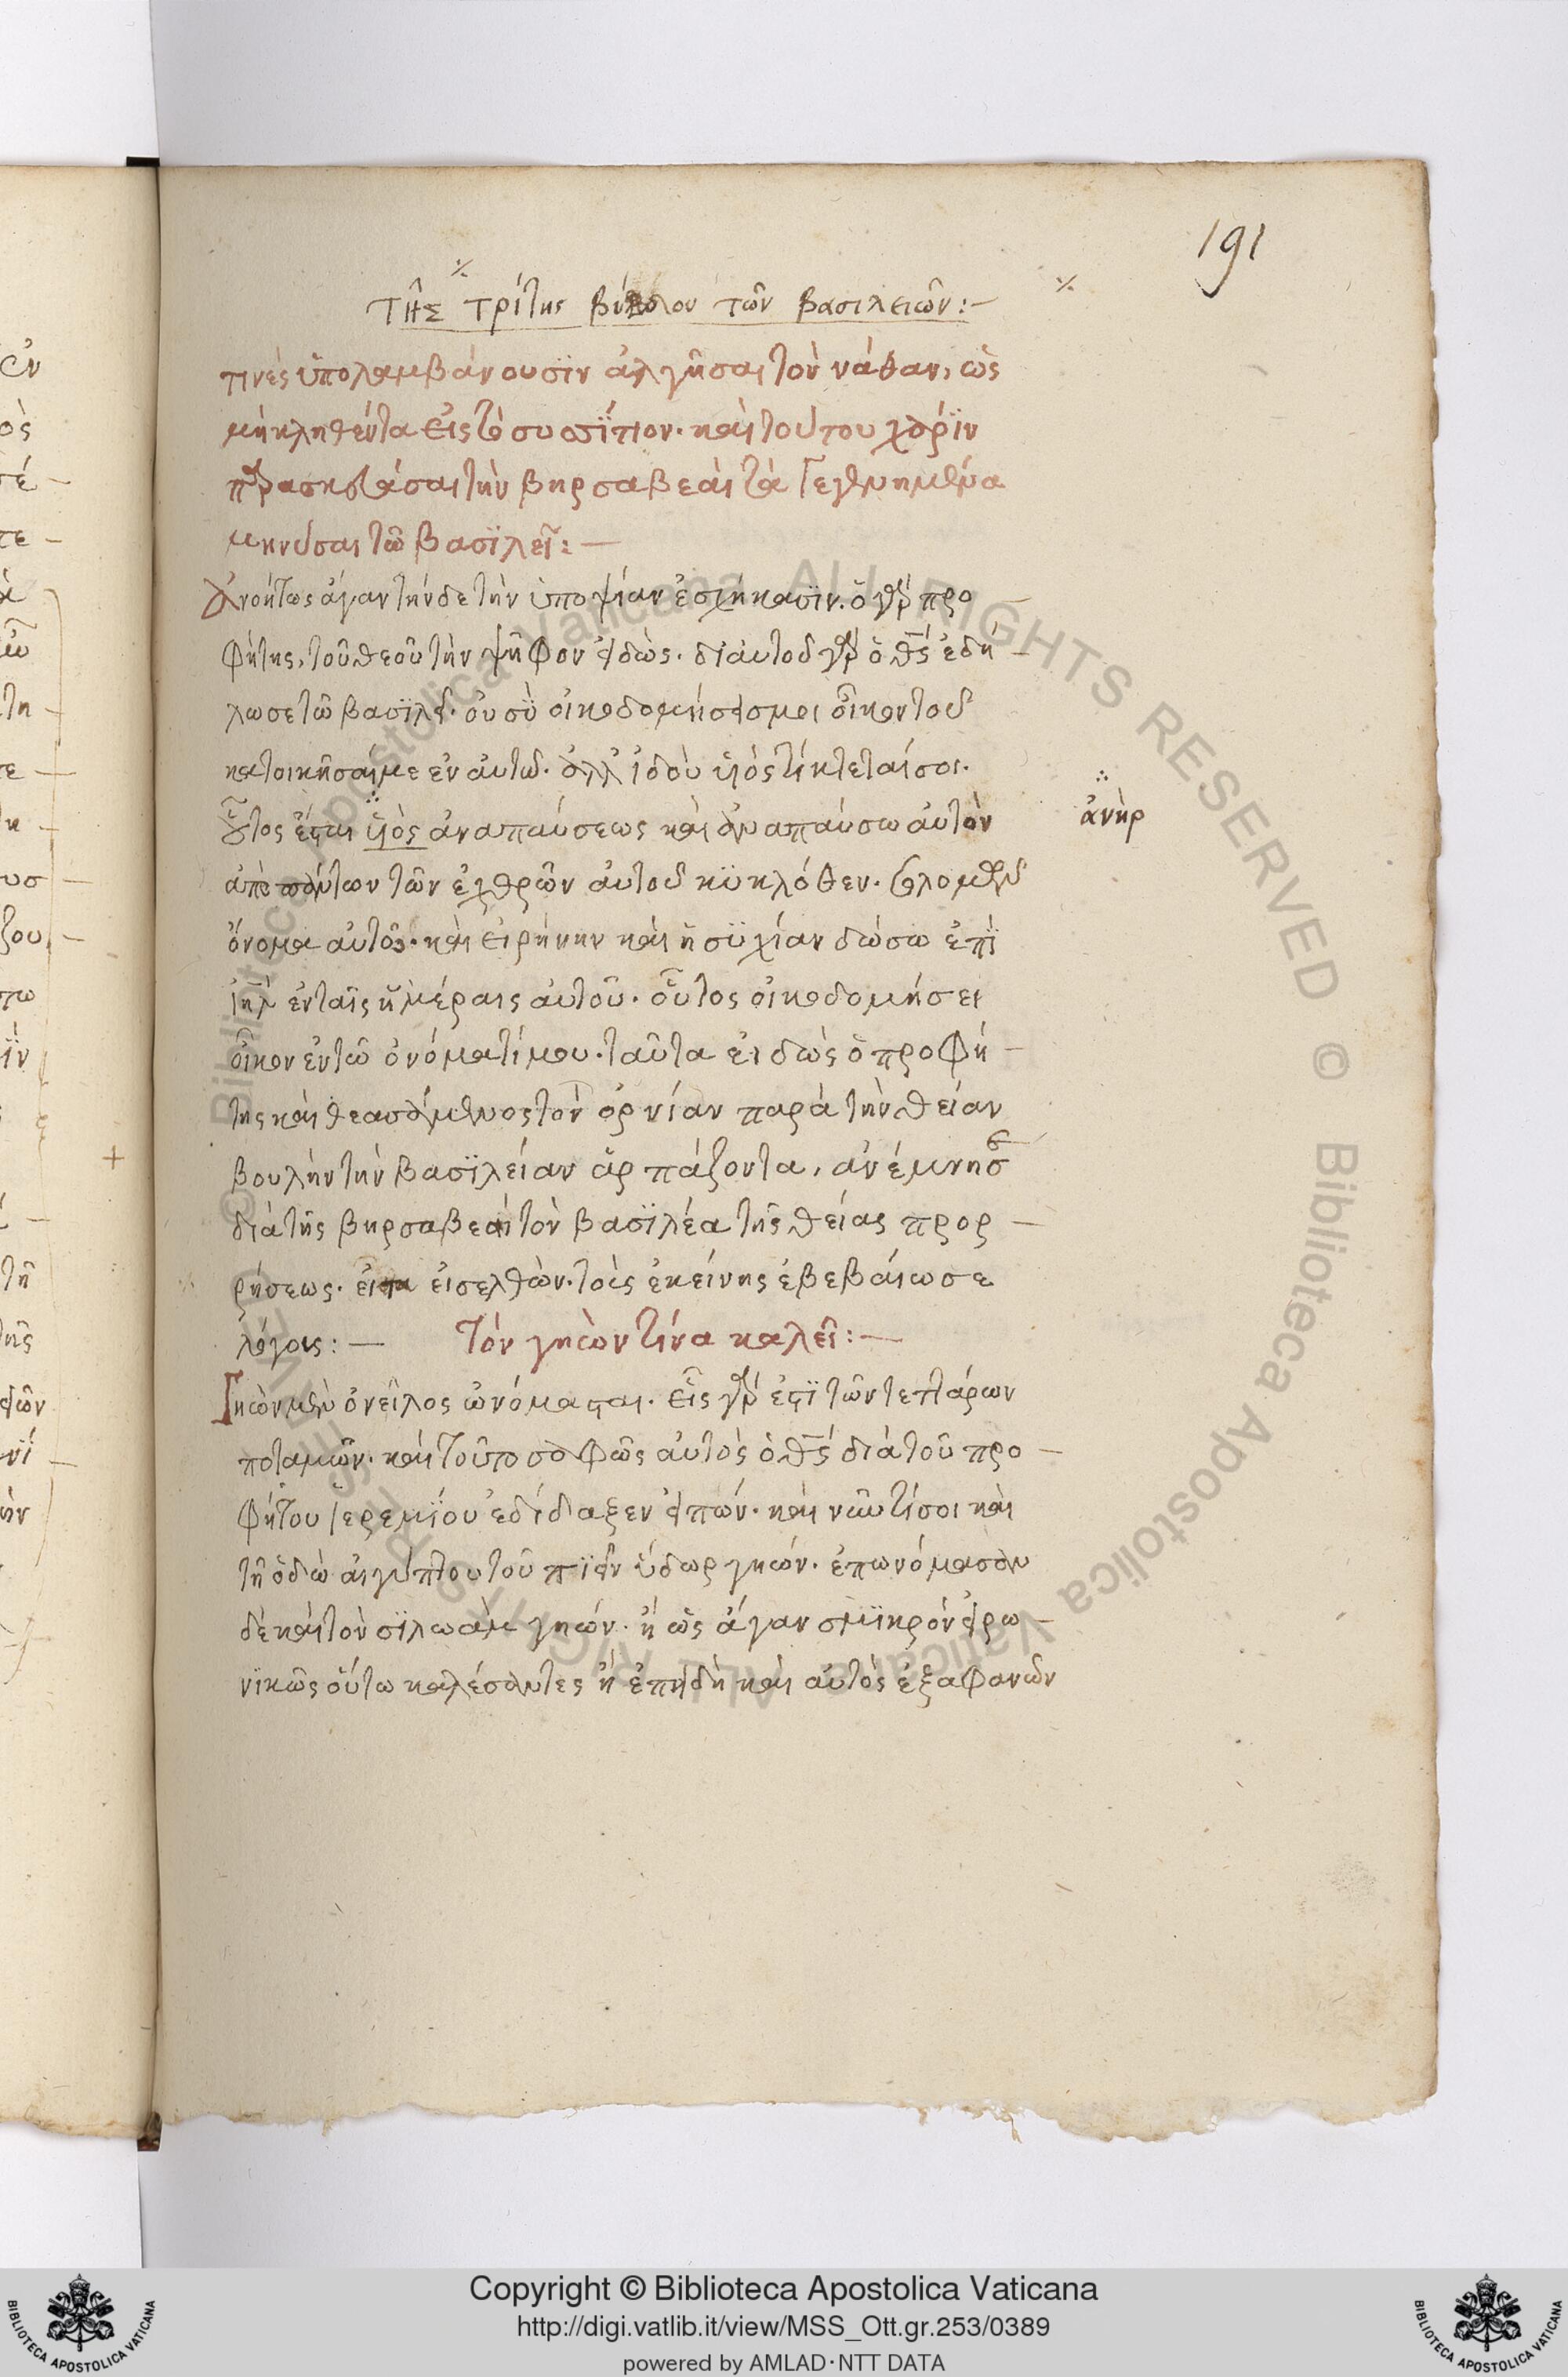 191
Τῆς τρίτης βύβλου τῶν βασιλειῶν:—
τινὲς ὑπολαμβάνουσϊν ἀλγῆσαι τὸν νάθαν, ὡς
μὴ κληθέντα εἰς τὸ συσσΐτιον. καὶ τούτου χάρϊν
παρασκευάσαι τὴν βηρσαβεαὶ τὰ γεγενημένα
μηνῦσαι τῶ βασϊλεῖ:—
Ἀνοήτως ἄγαν τήνδε τὴν ὑποψίαν ἐσχήκασϊν. ὁ γὰρ προ
φήτης, τοῦ θεοῦ τὴν ψῆφον εἰδὼς. δι' αὐτοῦ γὰρ ὁ θς ἐδή
λωσε τῶ βασϊλεῖ. οὐ σὺ οἰκοδομήσεις μοι οἶκον τοῦ
κατοικῆσαί με ἐν αὐτῶ. ἀλλ' ἰδοὺ υἱός τίκτεταί σοι.
οὗτος ἔσται υἱὸς ἀναπαύσεως καὶ ἀναπαύσω αὐτὸν
ἀνὴρ
ἀπὸ πάντων τῶν ἐχθρῶν αὐτοῦ κϋκλόθεν. σολομὼν
ὄνομα αὐτῶ. καὶ εἰρήνην καὶ ἡσϋχίαν δώσω ἐπῒ
ιηλ ἐν ταῖς ἡμέραις αὐτοῦ. οὗτος οἰκοδομήσει
οἶκον ἐν τῶ ὀνόματί μου. ταῦτα εἰδὼς ὁ προφή
της καὶ θεασάμενος τὸν ὀρνίαν παρὰ τὴν θείαν
βουλὴν τὴν βασϊλείαν ἁρπάζοντα, ἀνέμνησε
διὰ τῆς βηρσαβεαὶ τὸν βασϊλέα τῆς θείας προρ
ρήσεως. εἶτα εἰσελθὼν. τοὺς ἐκείνης ἐβεβαίωσε
λόγους:— Τὸν γηὼν τίνα καλεῖ:—
Γηὼν μὲν ὁ νεῖλος ὠνόμασται. εἷς γὰρ ἐστϊ τῶν τεττάρων
ποταμῶν. καὶ τοῦτο σαφῶς αὐτὸς ὁ θς διὰ τοῦ προ
φήτου ἱερεμΐου ἐδίδαξεν εἰπών. καὶ νῦν τί σοι καὶ
τῆ ὁδῶ αἰγύπτου τοῦ πϊεῖν ὕδωρ γηών. ἐπωνόμασαν
δὲ καὶ τὸν σϊλωὰμ γηών. ἢ ὡς ἄγαν σμϊκρόν εἰρω
νϊκῶς οὕτω καλέσαντες ἢ ἐπειδὴ καὶ αὐτὸς ἐξ ἀφανῶν
Copyright © Biblioteca Apostolica Vaticana
http://digi.vatlib.it/view/MSS_Ott.gr.253/0389
powered by AMLAD·NTT DATA